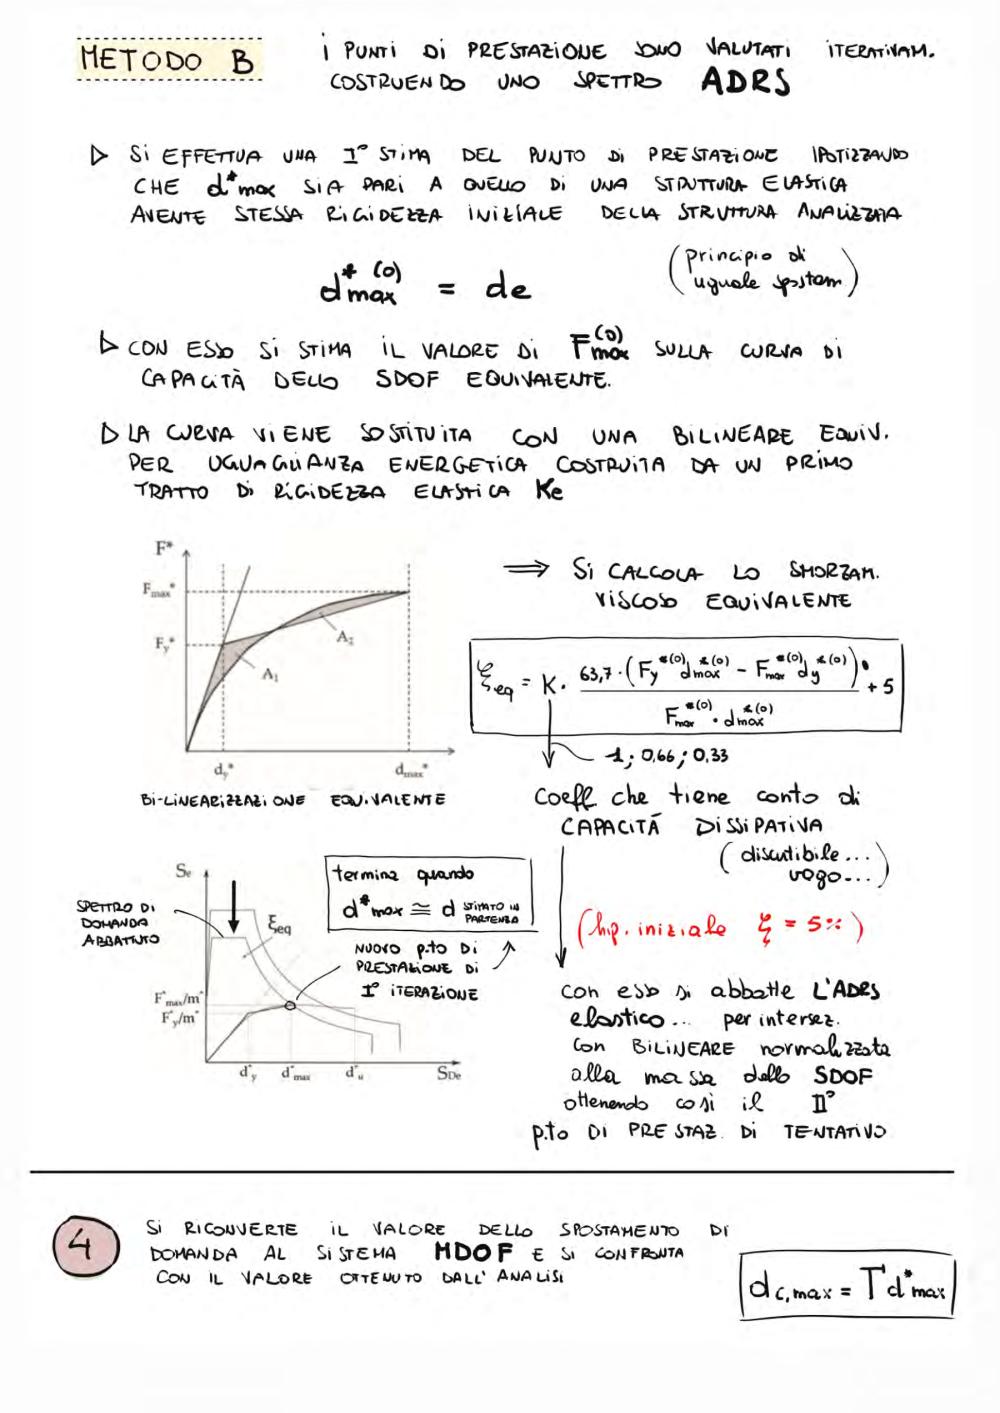 METODO B
i PUNTI Di PRESTAZIONE SONO VALUTATI iTERATIVAM.
COSTRUENDO UNO SPETTRO ADRS
▷ Si EFFETTUA UNA I° STIMA DEL PUNTO Di PRESTAZIONE IPOTIZZANDO
CHE d*max SIA PARI A QUELLO DI UNA STRUTTURA ELASTICA
AVENTE STESSA RIGIDEZZA INIZIALE DELLA STRUTTURA ANALIZZATA
d*max(0) = de
(principio di
uguale spostam)
▷ CON ESSO Si STIMA iL VALORE Di Fmax(0) SULLA CURVA DI
CAPACITÀ DELLO SDOF EQUIVALENTE.
▷ LA CURVA ViENE SOSTITUITA CON UNA BILINEARE EQUIV.
PER UGUAGLIANZA ENERGETICA COSTRUITA DA UN PRIMO
TRATTO Di RIGIDEZZA ELASTICA Ke
F*
Fmax*
Fy*
A1
A2
dy*
dmax*
Bi-LINEARIZZAZIONE EQUIVALENTE
⇒ Si CALCOLA LO SMORZAM.
VISCOSO EQUIVALENTE
ξeq = K · 63,7 · (Fy*(0) dmax*(0) - Fmax*(0) dy*(0)) / Fmax*(0) · dmax*(0) + 5
1; 0,66; 0,33
Coeff che tiene conto di
CAPACITÀ DISSIPATIVA
(discutibile...
vago...)
(hp. iniziale ξ = 5%)
con esso si abbatte L'ADRS
elastico... per intersez.
Con BILINEARE normalizzata
alla massa dello SDOF
ottenendo così il II°
p.to DI PRESTAZ. Di TENTATIVO
Se
SPETTRO DI
DOMANDA
ABBATTUTO
ξeq
termina quando
d*max ≅ d STIMATO IN PARTENZA
NUOVO p.to Di
PRESTAZIONE Di
I° ITERAZIONE
F*max/m*
F*y/m*
d*y d*max d*u SDe
4
Si RICONVERTE iL VALORE DELLO SPOSTAMENTO DI
DOMANDA AL SISTEMA MDOF E SI CONFRONTA
CON IL VALORE OTTENUTO DALL'ANALISI
dc,max = Γd*max